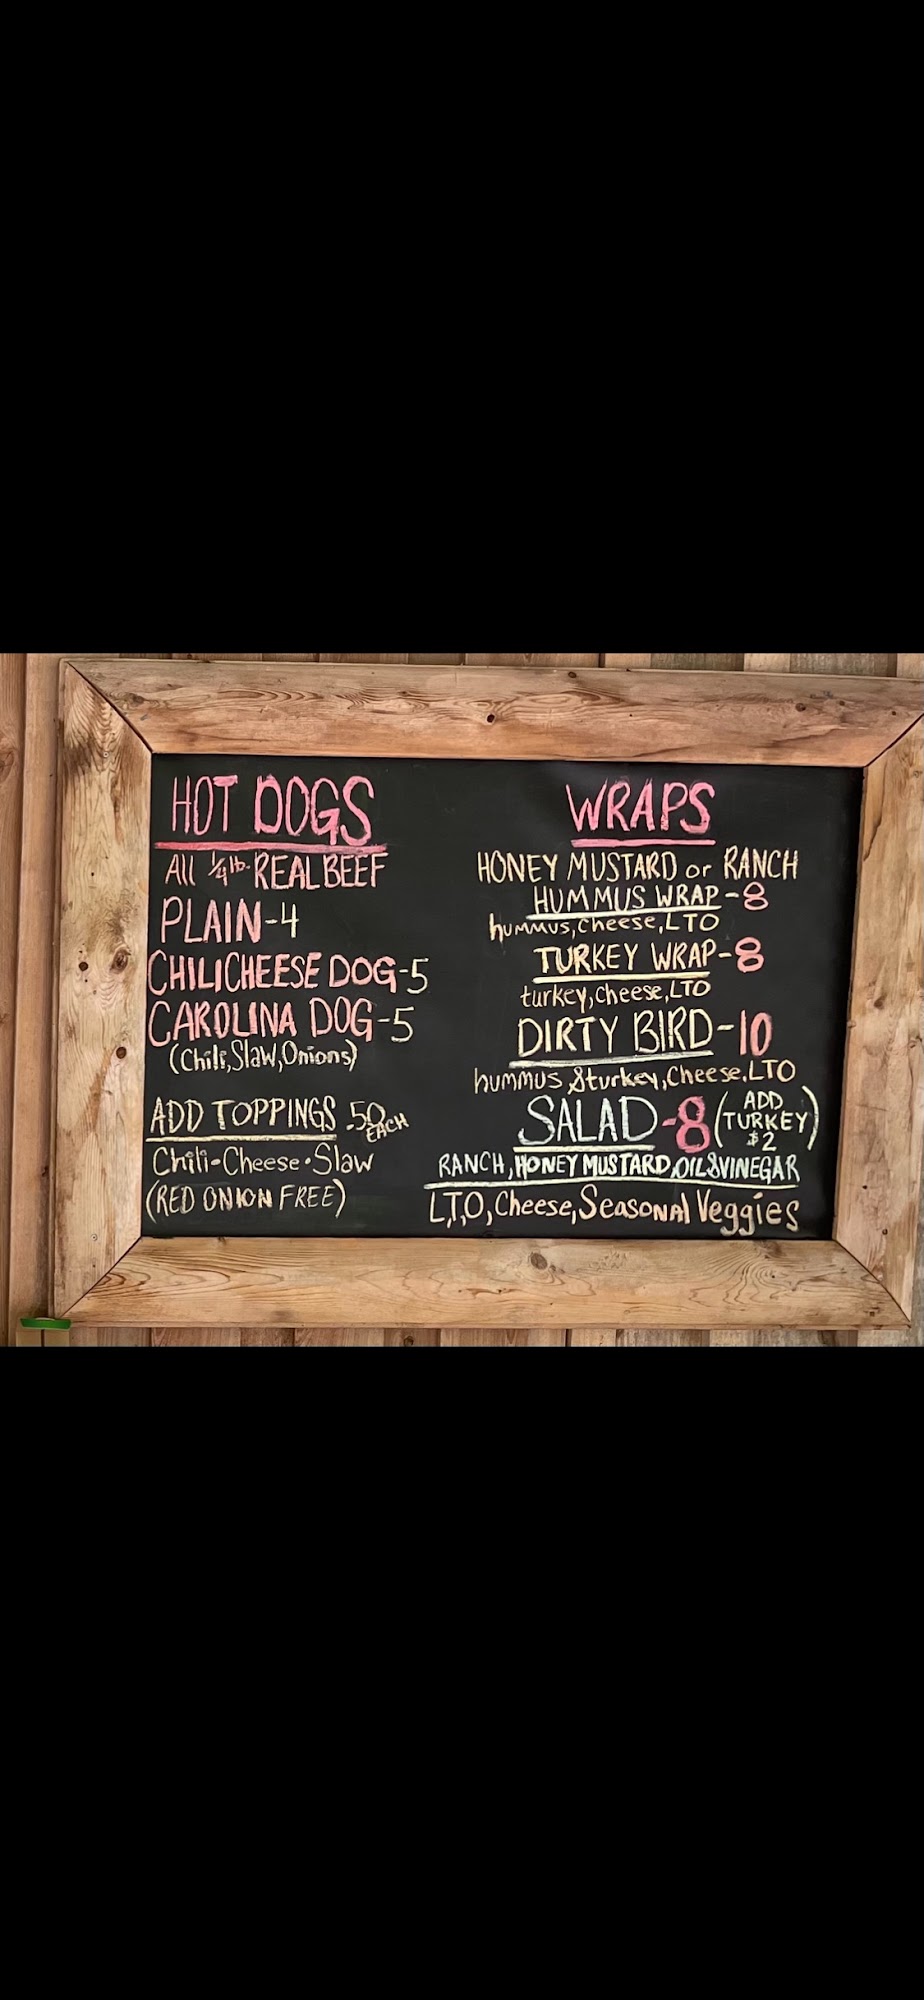 HOT DOGS
All 1/4 lb. REAL BEEF
PLAIN-4
CHILICHEESE DOG-5
CAROLINA DOG-5
(Chili,Slaw,Onions)
ADD TOPPINGS .50 EACH
Chili-Cheese•Slaw
(RED ONION FREE)
WRAPS
HONEY MUSTARD or RANCH
HUMMUS WRAP-8
hummus,cheese,LTO
TURKEY WRAP-8
turkey,cheese,LTO
DIRTY BIRD-10
hummus &turkey,Cheese,LTO
SALAD-8 (ADD TURKEY $2)
RANCH, HONEY MUSTARD,OIL&VINEGAR
L,T,O, Cheese, Seasonal Veggies